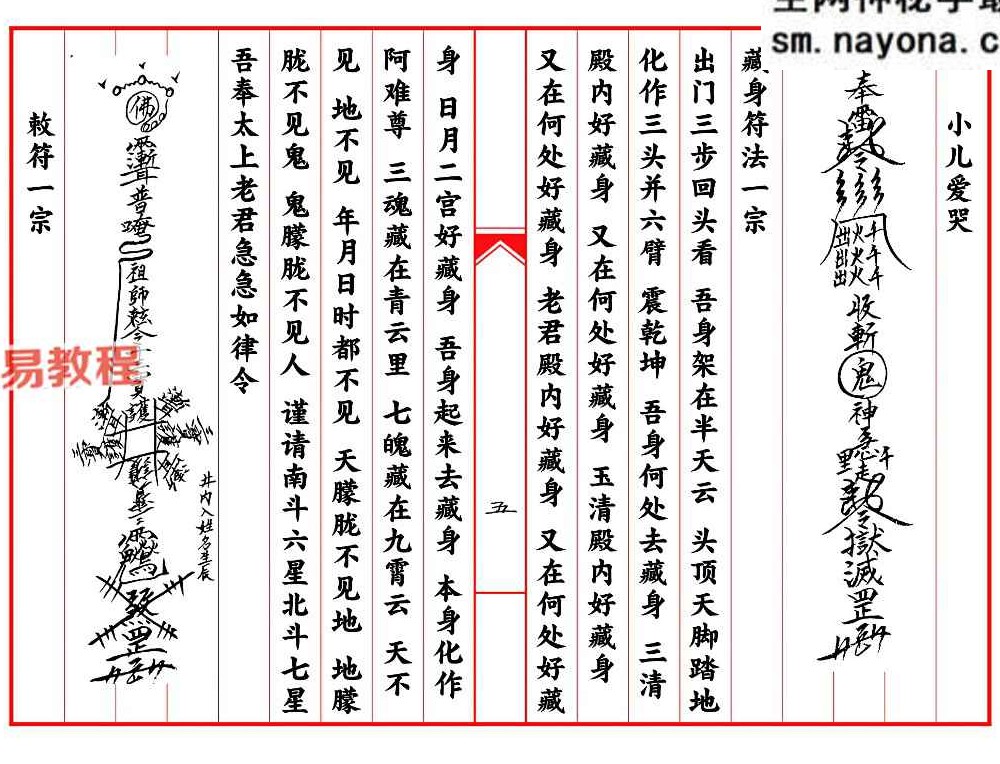 sm.nayona.c
小儿爱哭
奉 收斬鬼神 獄滅罡
藏身符法一宗
出门三步回头看 吾身架在半天云 头顶天脚踏地
化作三头并六臂 震乾坤 吾身何处去藏身 三清
殿内好藏身 又在何处好藏身 玉清殿内好藏身
又在何处好藏身 老君殿内好藏身 又在何处好藏
五
身 日月二宫好藏身 吾身起来去藏身 本身化作
阿难尊 三魂藏在青云里 七魄藏在九霄云 天不
见 地不见 年月日时都不见 天朦胧不见地 地朦
胧不见鬼 鬼朦胧不见人 谨请南斗六星北斗七星
吾奉太上老君急急如律令
井内入姓名生辰
佛 普唵祖師 護 罡
敕符一宗
易教程